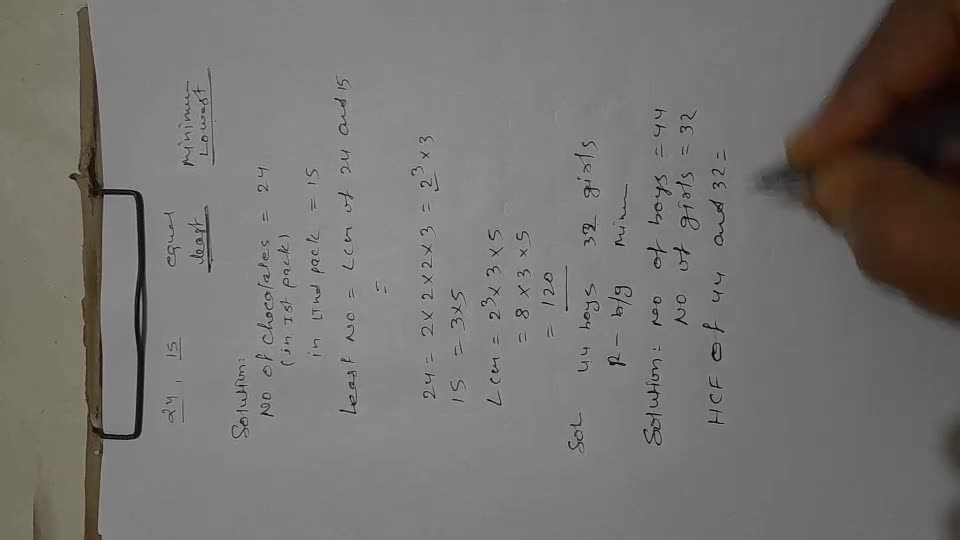 24, 15 equal Minimum
least Lowest
Solution:
NO of chocolates = 24
(in Ist pack)
in IInd pack = 15
Least NO = Lcm of 24 and 15
=
24 = 2×2×2×3 = 2³×3
15 = 3×5
Lcm = 2³×3×5
= 8×3×5
= 120
Sol 44 boys 32 girls
R - b/g
Solution: NO of boys = 44
NO of girls = 32
HCF of 44 and 32 =